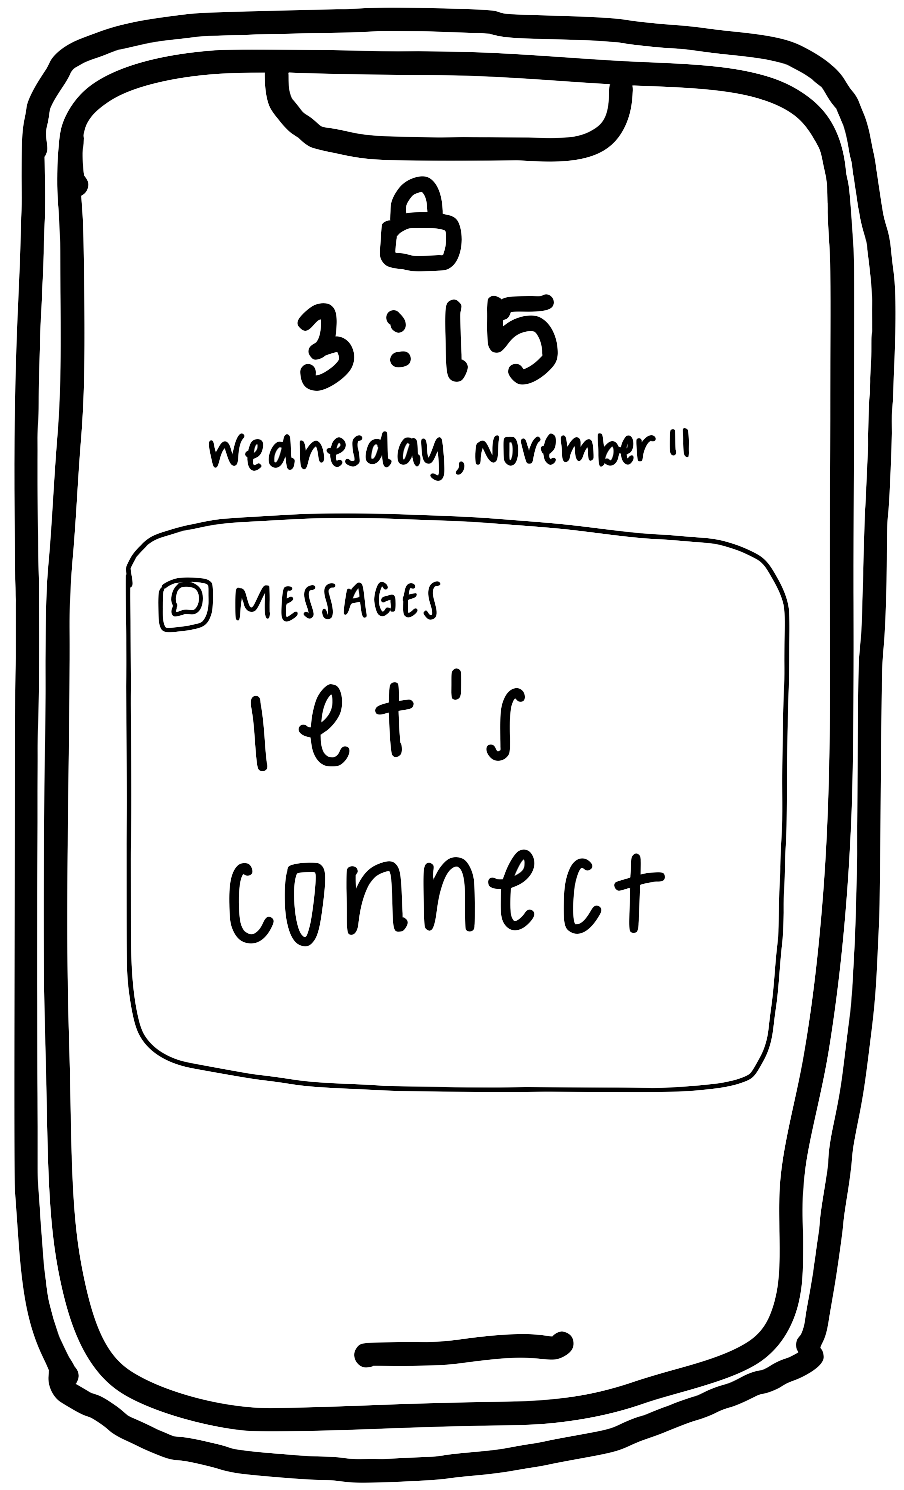 3:15
Wednesday, November 11
MESSAGES
let's
connect